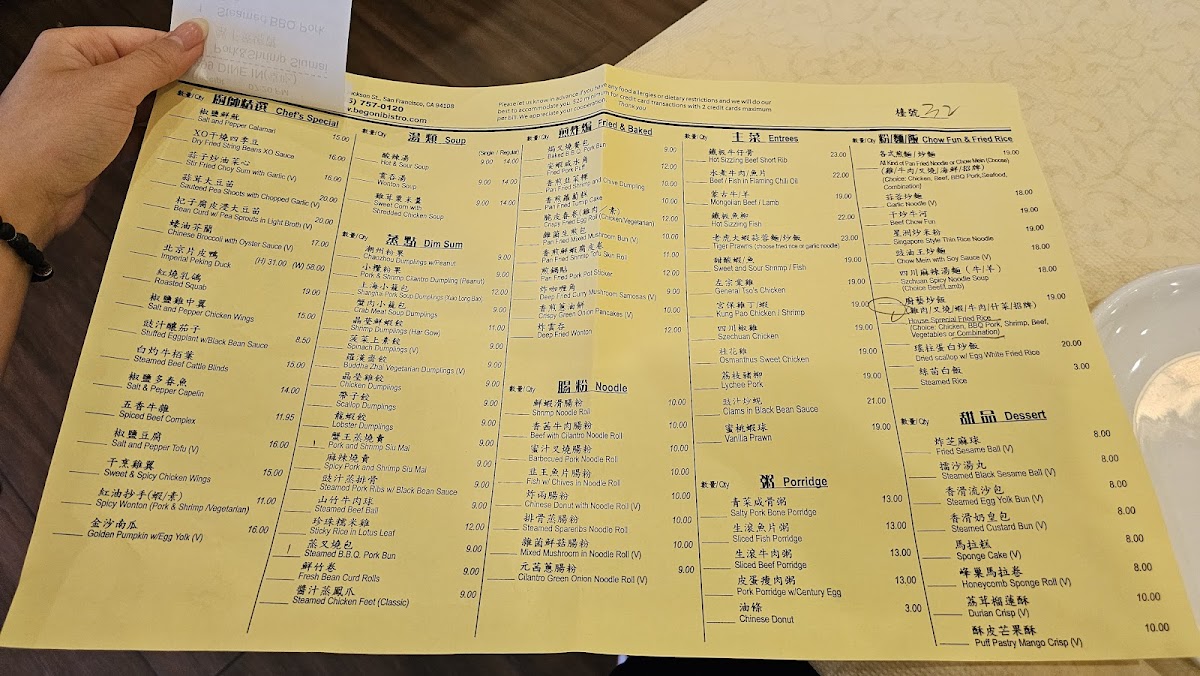 Steamed BBQ Pork
Pork&Shrimp Siumai
DINE IN
Jackson St., San Francisco, CA 94108
757-0120
www.begonibistro.com
Please let us know in advance if you have any food allergies or dietary restrictions and we will do our
best to accommodate you. $20 minimum for credit card transactions with 2 credit cards maximum
per bill. We appreciate your cooperation. Thank you
檯號 32
數量/Qty 廚師精選 Chef's Special
椒鹽鮮魷
Salt and Pepper Calamari 15.00
XO干燒四季豆
Dry Fried String Beans XO Sauce 16.00
蒜子炒油菜心
Stir Fried Choy Sum with Garlic (V) 16.00
蒜茸大豆苗
Sauteed Pea Shoots with Chopped Garlic (V) 20.00
杞子腐皮浸大豆苗
Bean Curd w/ Pea Sprouts in Light Broth (V) 20.00
蠔油芥蘭
Chinese Broccoli with Oyster Sauce (V) 17.00
北京片皮鴨
Imperial Peking Duck (H) 31.00 (W) 58.00
紅燒乳鴿
Roasted Squab 19.00
椒鹽雞中翼
Salt and Pepper Chicken Wings 15.00
豉汁釀茄子
Stuffed Eggplant w/Black Bean Sauce 8.50
白灼牛栢葉
Steamed Beef Cattle Blinds 15.00
椒鹽多春魚
Salt & Pepper Capelin 14.00
五香牛雜
Spiced Beef Complex 11.95
椒鹽豆腐
Salt and Pepper Tofu (V) 16.00
干烹雞翼
Sweet & Spicy Chicken Wings 15.00
紅油抄手(蝦/素)
Spicy Wonton (Pork & Shrimp /Vegetarian) 11.00
金沙南瓜
Golden Pumpkin w/Egg Yolk (V) 16.00
數量/Qty 湯類 Soup
(Single / Regular)
酸辣湯
Hot & Sour Soup 9.00 14.00
雲吞湯
Wonton Soup 9.00 14.00
雞茸粟米羹
Sweet Corn with
Shredded Chicken Soup 9.00 14.00
數量/Qty 蒸點 Dim Sum
潮州粉果
Chaozhou Dumplings w/Peanut 9.00
小欖粉果
Pork & Shrimp Cilantro Dumpling (Peanut) 9.00
上海小籠包
Shanghai Pork Soup Dumplings (Xiao Long Bao) 9.00
蟹肉小籠包
Crab Meat Soup Dumplings 9.00
晶瑩鮮蝦餃
Shrimp Dumplings (Har Gow) 11.00
菠菜上素餃
Spinach Dumplings (V) 9.00
羅漢齋餃
Buddha Zhai Vegetarian Dumplings (V) 9.00
晶瑩雞餃
Chicken Dumplings 9.00
帶子餃
Scallop Dumplings 9.00
龍蝦餃
Lobster Dumplings 9.00
1 蟹王蒸燒賣
Pork and Shrimp Siu Mai 9.00
麻辣燒賣
Spicy Pork and Shrimp Siu Mai 9.00
豉汁蒸排骨
Steamed Pork Ribs w/ Black Bean Sauce 9.00
山竹牛肉球
Steamed Beef Ball 9.00
珍珠糯米雞
Sticky Rice in Lotus Leaf 12.00
1 蒸叉燒包
Steamed B.B.Q. Pork Bun 9.00
鮮竹卷
Fresh Bean Curd Rolls 9.00
醬汁蒸鳳爪
Steamed Chicken Feet (Classic) 9.00
數量/Qty 煎炸焗 Fried & Baked
焗叉燒餐包
Baked B.B.Q. Pork Bun 9.00
安蝦咸水角
Fried Pork Puff 9.00
香煎韮菜粿
Pan Fried Shrimp and Chive Dumpling 10.00
香煎蘿蔔糕
Pan Fried Turnip Cake 10.00
脆皮春卷(雞肉/素)
Crispy Fried Egg Roll (Chicken/Vegetarian) 12.00
雜菌生煎包
Pan Fried Mixed Mushroom Bun (V) 10.00
香煎鮮蝦腐皮卷
Pan Fried Shrimp Tofu Skin Roll 10.00
煎鍋貼
Pan Fried Pork Pot Sticker 12.00
炸咖喱角
Deep Fried Curry Mushroom Samosas (V) 9.00
香煎蔥油餅
Crispy Green Onion Pancakes (V) 10.00
炸雲吞
Deep Fried Wonton 12.00
數量/Qty 腸粉 Noodle
鮮蝦滑腸粉
Shrimp Noodle Roll 10.00
香茜牛肉腸粉
Beef with Cilantro Noodle Roll 10.00
蜜汁叉燒腸粉
Barbecued Pork Noodle Roll 10.00
韭王魚片腸粉
Fish w/ Chives in Noodle Roll 10.00
炸兩腸粉
Chinese Donut with Noodle Roll 10.00
排骨蒸腸粉
Steamed Spareribs Noodle Roll 10.00
雜菌鮮菇腸粉
Mixed Mushroom in Noodle Roll (V) 10.00
元茜蔥腸粉
Cilantro Green Onion Noodle Roll (V) 9.00
數量/Qty 主菜 Entrees
鐵板牛仔骨
Hot Sizzling Beef Short Rib 23.00
水煮牛肉/魚片
Beef / Fish in Flaming Chili Oil 22.00
蒙古牛/羊
Mongolian Beef / Lamb 22.00
鐵板魚柳
Hot Sizzling Fish 22.00
老虎大蝦蒜蓉麵/炒飯
Tiger Prawns (choose fried rice or garlic noodle) 23.00
甜酸蝦/魚
Sweet and Sour Shrimp / Fish 19.00
左宗棠雞
General Tso's Chicken 19.00
宮保雞丁/蝦
Kung Pao Chicken / Shrimp 19.00
四川椒雞
Szechuan Chicken 19.00
桂花雞
Osmanthus Sweet Chicken 19.00
荔枝豬柳
Lychee Pork 19.00
豉汁炒蜆
Clams in Black Bean Sauce 21.00
蜜桃蝦球
Vanilla Prawn 19.00
數量/Qty 粥 Porridge
青菜咸骨粥
Salty Pork Bone Porridge 13.00
生滾魚片粥
Sliced Fish Porridge 13.00
生滾牛肉粥
Sliced Beef Porridge 13.00
皮蛋瘦肉粥
Pork Porridge w/Century Egg 13.00
油條
Chinese Donut 3.00
數量/Qty 粉/麵/飯 Chow Fun & Fried Rice
各式煎麵/炒麵 19.00
All Kind of Pan Fried Noodle or Chow Mein (Choose)
(雞/牛肉/叉燒/海鮮/招牌)
(Choice: Chicken, Beef, BBQ Pork, Seafood,
Combination)
蒜蓉炒麵
Garlic Noodle (V) 18.00
干炒牛河
Beef Chow Fun 19.00
星洲炒米粉
Singapore Style Thin Rice Noodle 19.00
豉油王炒麵
Chow Mein with Soy Sauce (V) 18.00
四川麻辣湯麵(牛/羊)
Szchuan Spicy Noodle Soup
(Choice Beef/Lamb) 18.00
1 廚藝炒飯 19.00
(雞肉/叉燒/蝦/牛肉/什菜/招牌)
House Special Fried Rice
(Choice: Chicken, BBQ Pork, Shrimp, Beef,
Vegetables or Combination)
瑤柱蛋白炒飯
Dried scallop w/ Egg White Fried Rice 20.00
絲苗白飯
Steamed Rice 3.00
數量/Qty 甜品 Dessert
炸芝麻球
Fried Sesame Ball (V) 8.00
擂沙湯丸
Steamed Black Sesame Ball (V) 8.00
香滑流沙包
Steamed Egg Yolk Bun (V) 8.00
香滑奶皇包
Steamed Custard Bun (V) 8.00
馬拉糕
Sponge Cake (V) 8.00
蜂巢馬拉卷
Honeycomb Sponge Roll (V) 8.00
荔茸榴蓮酥
Durian Crisp (V) 10.00
酥皮芒果酥
Puff Pastry Mango Crisp (V) 10.00